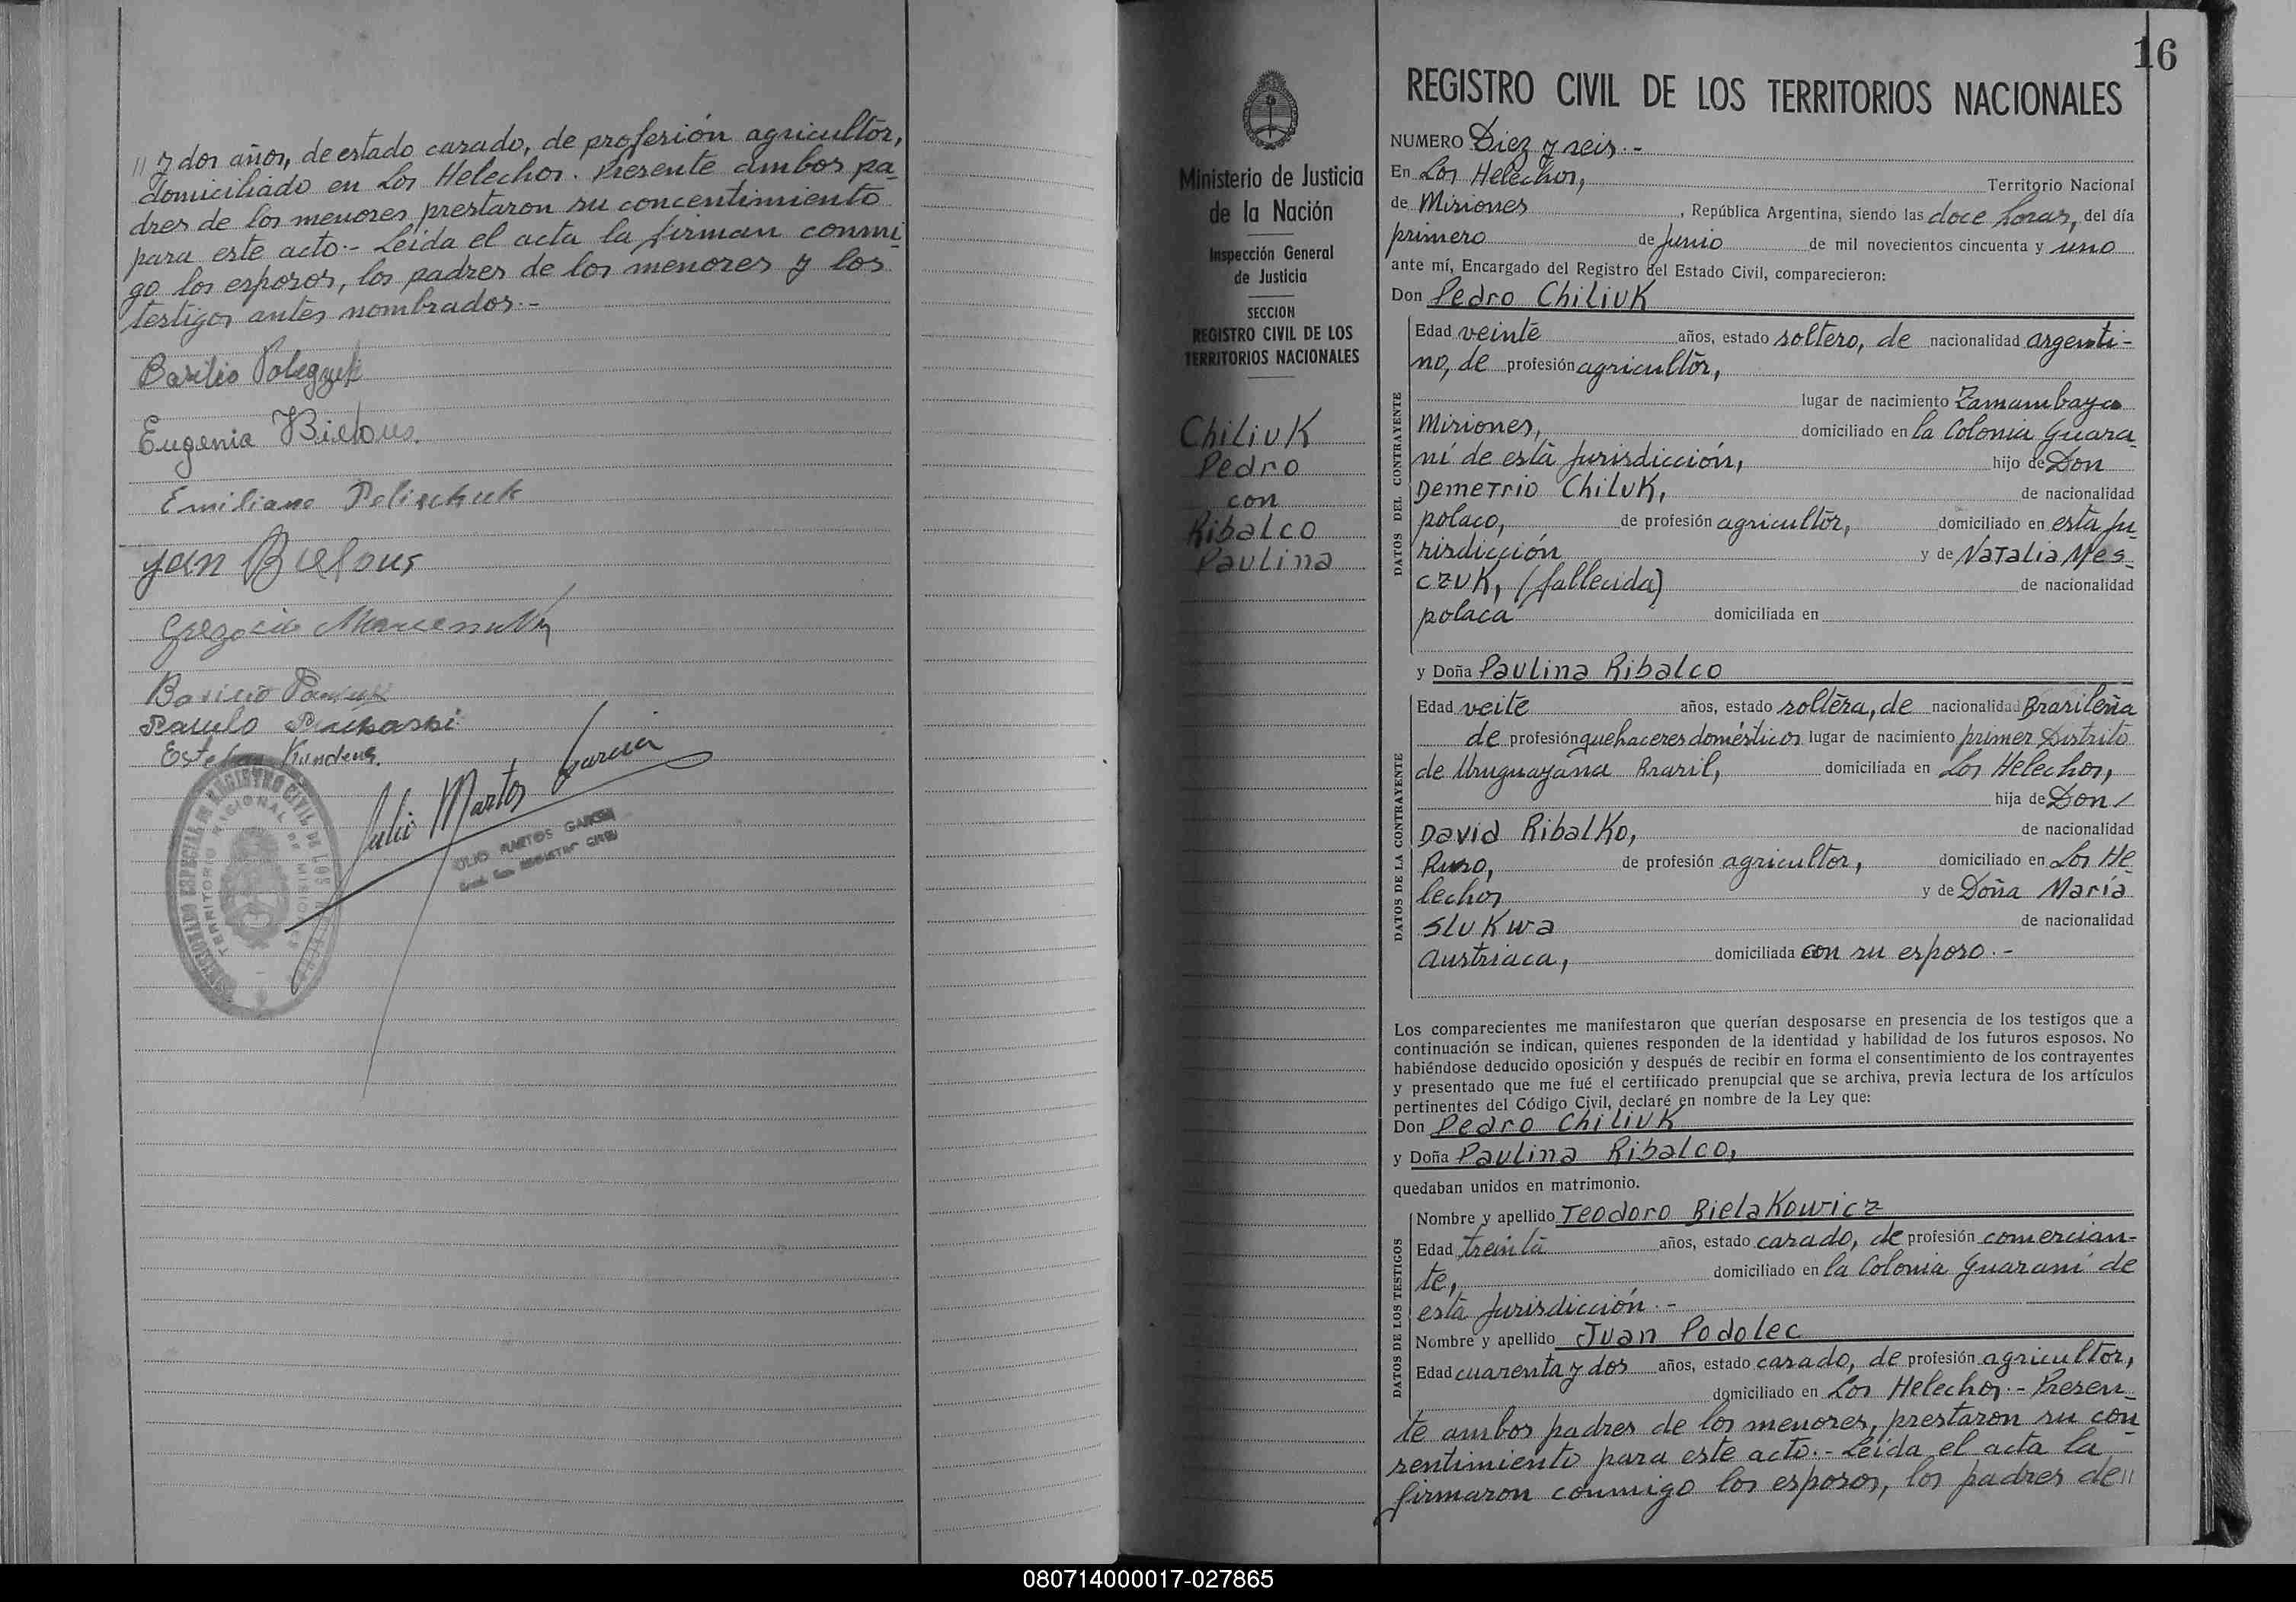 // y dos años, de estado casado, de profesión agricultor,
domiciliado en Los Helechos. Presente ambos pa_
dres de los menores prestaron su concentimiento
para este acto.- Leida el acta la firman conmi_
go los esposos, los padres de los menores y los
testigos antes nombrados.-
Basilio
Eugenia Bielous.
Emiliano Polischuk
Jan Bielous
Basilio
Paulo
Esteban
Julio Martos Garcia
JULIO MARTOS GARCIA
REGISTRO CIVIL
TERRITORIO NACIONAL DE MISIONES
Ministerio de Justicia
de la Nación
Inspección General
de Justicia
SECCION
REGISTRO CIVIL DE LOS
TERRITORIOS NACIONALES
Chiliuk
Pedro
con
Ribalco
Paulina
16
REGISTRO CIVIL DE LOS TERRITORIOS NACIONALES
NUMERO Diez y seis.-
En Los Helechos, Territorio Nacional
de Misiones, República Argentina, siendo las doce horas, del día
primero de Junio de mil novecientos cincuenta y uno
ante mí, Encargado del Registro del Estado Civil, comparecieron:
Don Pedro Chiliuk
DATOS DEL CONTRAYENTE
Edad veinte años, estado soltero, de nacionalidad argenti-
no, de profesión agricultor,
lugar de nacimiento Zamambaya
Misiones, domiciliado en la Colonia Guara_
ní de esta Jurisdicción, hijo de Don
Demetrio Chiluk, de nacionalidad
polaco, de profesión agricultor, domiciliado en esta Ju_
risdicción y de Natalia Mes_
czuk, (fallecida) de nacionalidad
polaca domiciliada en
y Doña Paulina Ribalco
DATOS DE LA CONTRAYENTE
Edad veite años, estado soltera, de nacionalidad Brasileña
de profesión quehaceres domésticos lugar de nacimiento primer Distrito
de Uruguayana Brasil, domiciliada en Los Helechos,
hija de Don /
David Ribalko, de nacionalidad
Ruso, de profesión agricultor, domiciliado en Los He_
lechos y de Doña María
Slukwa de nacionalidad
austriaca, domiciliada con su esposo.-
Los comparecientes me manifestaron que querían desposarse en presencia de los testigos que a
continuación se indican, quienes responden de la identidad y habilidad de los futuros esposos. No
habiéndose deducido oposición y después de recibir en forma el consentimiento de los contrayentes
y presentado que me fué el certificado prenupcial que se archiva, previa lectura de los artículos
pertinentes del Código Civil, declaré en nombre de la Ley que:
Don Pedro Chiliuk
y Doña Paulina Ribalco,
quedaban unidos en matrimonio.
DATOS DE LOS TESTIGOS
Nombre y apellido Teodoro Bielakowicz
Edad treinta años, estado casado, de profesión comercian-
te, domiciliado en la Colonia Guaraní de
esta Jurisdicción.-
Nombre y apellido Juan Podolec
Edad cuarenta y dos años, estado casado, de profesión agricultor,
domiciliado en Los Helechos.- Presen_
te ambos padres de los menores, prestaron su con_
sentimiento para este acto.- Leida el acta la
firmaron conmigo los esposos, los padres de //
080714000017-027865